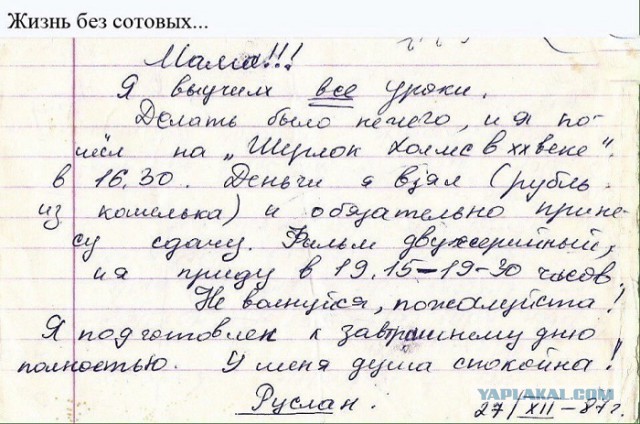 Жизнь без сотовых...
Мама!!!
Я выучил все уроки.
Делать было нечего, и я по-
шёл на „Шерлок Холмс в ХХ веке".
в 16.30. Деньги я взял (рубль
из кошелька) и обязательно прине-
су сдачу. Фильм двухсерийный,
и я приду в 19.15–19-30 часов.
Не волнуйся, пожалуйста!
Я подготовлен к завтрашнему дню
полностью. У меня душа спокойна!
Руслан.
27/XII – 87 г.
YAPLAKAL.COM